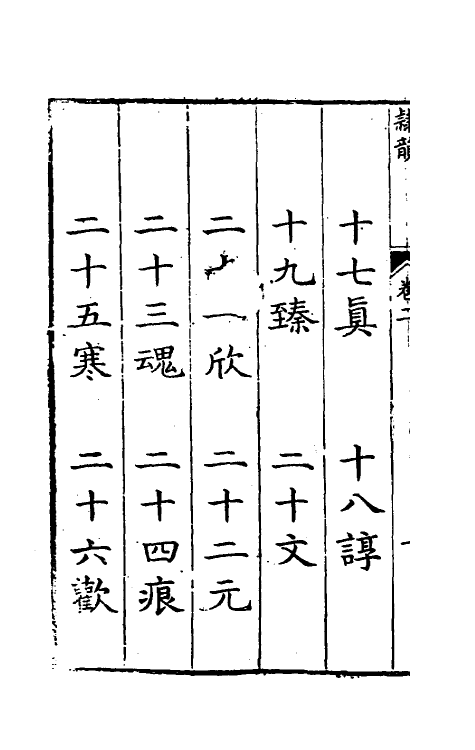 隸韻 卷二
十七眞 十八諄
十九臻 二十文
二十一欣 二十二元
二十三魂 二十四痕
二十五寒 二十六歡